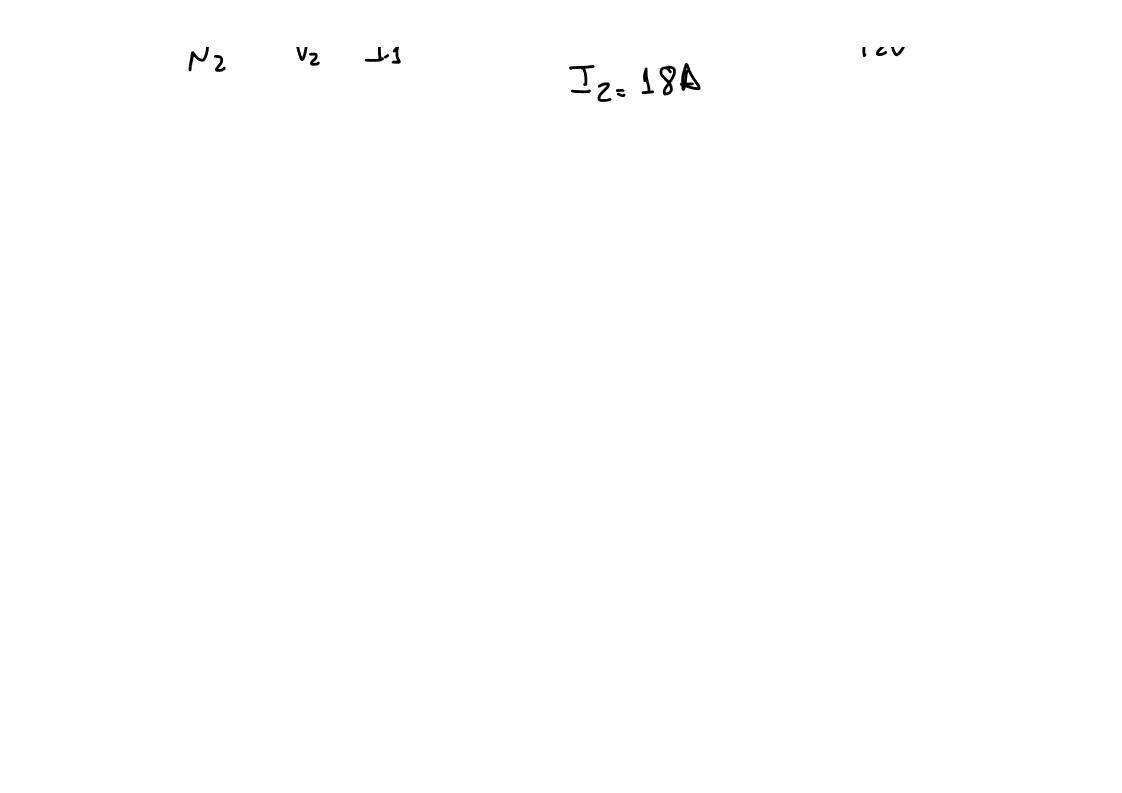 N2 V2 I1
I2= 18A